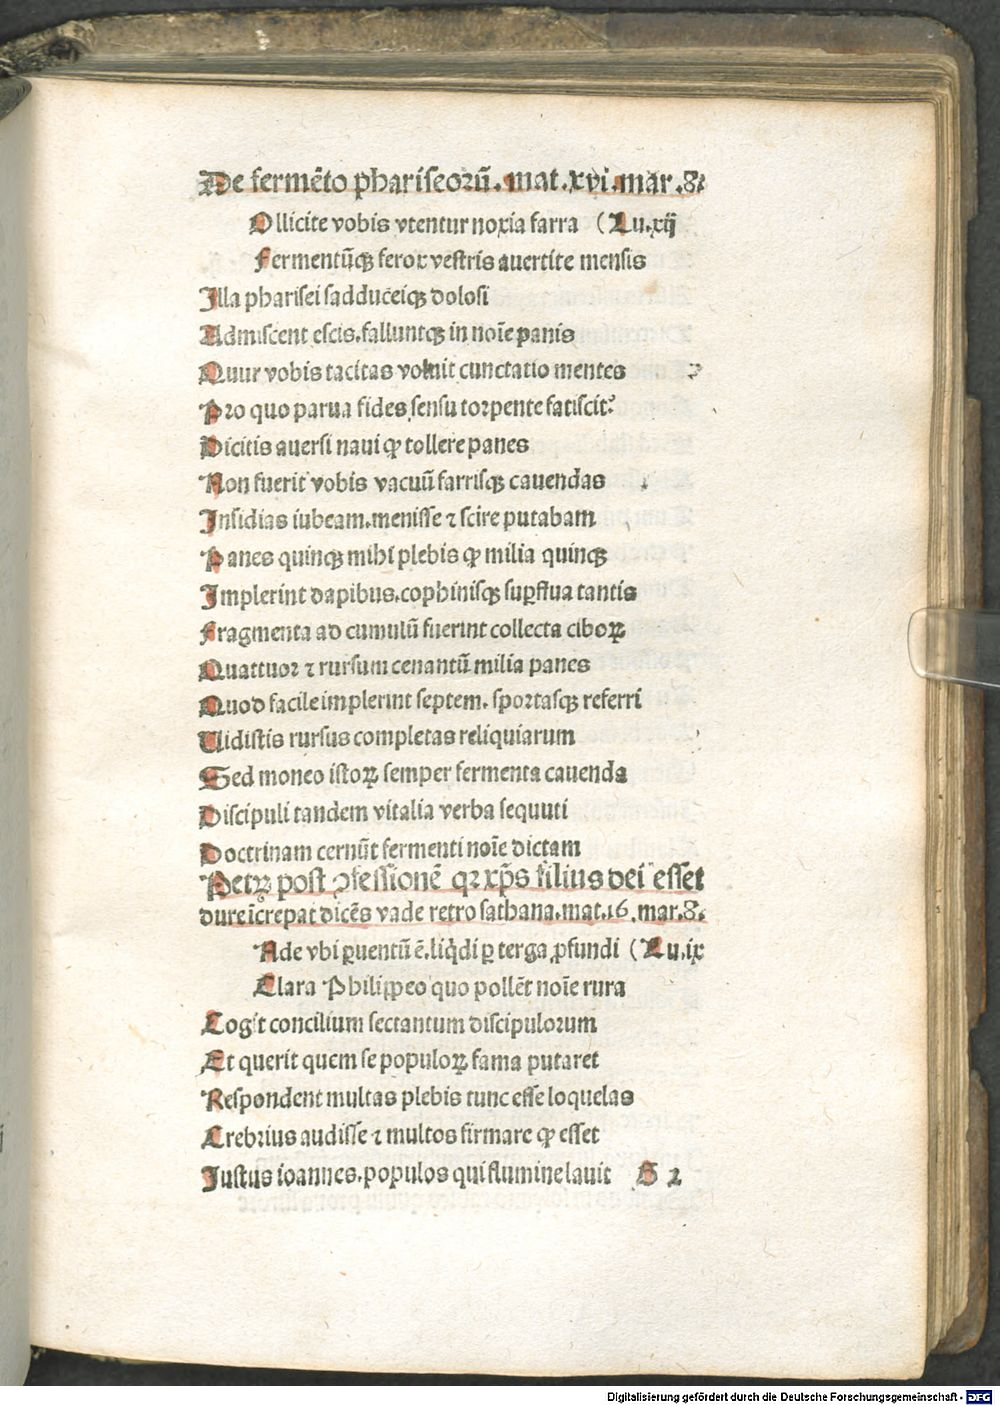 De fermēto phariseorū. mat. xvi. mar. 8.
Ollicite vobis vtentur noxia farra (Lu. xij
Fermentūqꝫ ferox vestris auertite mensis
Illa pharisei sadduceiqꝫ dolosi
Admiscent escis. falluntqꝫ in noīe panis
Quur vobis tacitas voluit cunctatio mentes
Pro quo parua fides sensu torpente fatiscit?
Dicitis auersi naui ꝙ tollere panes
Non fuerit vobis vacuū farrisqꝫ cauendas
Insidias iubeam. menisse ⁊ scire putabam
Panes quinqꝫ mihi plebis ꝙ milia quinqꝫ
Implerint dapibus. cophinisqꝫ suꝑflua tantis
Fragmenta ad cumulū fuerint collecta ciboꝝ
Quattuor ⁊ rursum cenantū milia panes
Quod facile implerint septem. sportasqꝫ referri
Uidistis rursus completas reliquiarum
Sed moneo istoꝝ semper fermenta cauenda
Discipuli tandem vitalia verba sequuti
Doctrinam cernūt fermenti noīe dictam
Petꝝ post ꝯfessionē qꝛ xp̄s filius dei esset
dure īcrepat dicēs vade retro sathana. mat. 16. mar. 8.
Ade vbi ꝑuentū ē. liq̇di ꝑ terga ꝓfundi (Lu. ix
Clara Philiꝑpeo quo pollēt noīe rura
Cogit concilium sectantum discipulorum
Et querit quem se populoꝝ fama putaret
Respondent multas plebis tunc esse loquelas
Crebrius audisse ⁊ multos firmare ꝙ esset
Justus ioannes. populos qui flumine lauit G 2
Digitalisierung gefördert durch die Deutsche Forschungsgemeinschaft - DFG